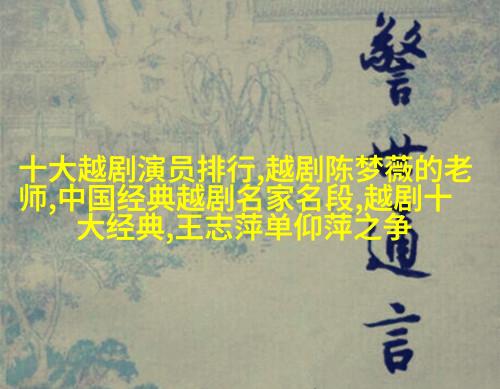 十大越剧演员排行,越剧陈梦薇的老
师,中国经典越剧名家名段,越剧十
大经典,王志萍单仰萍之争
警世通言